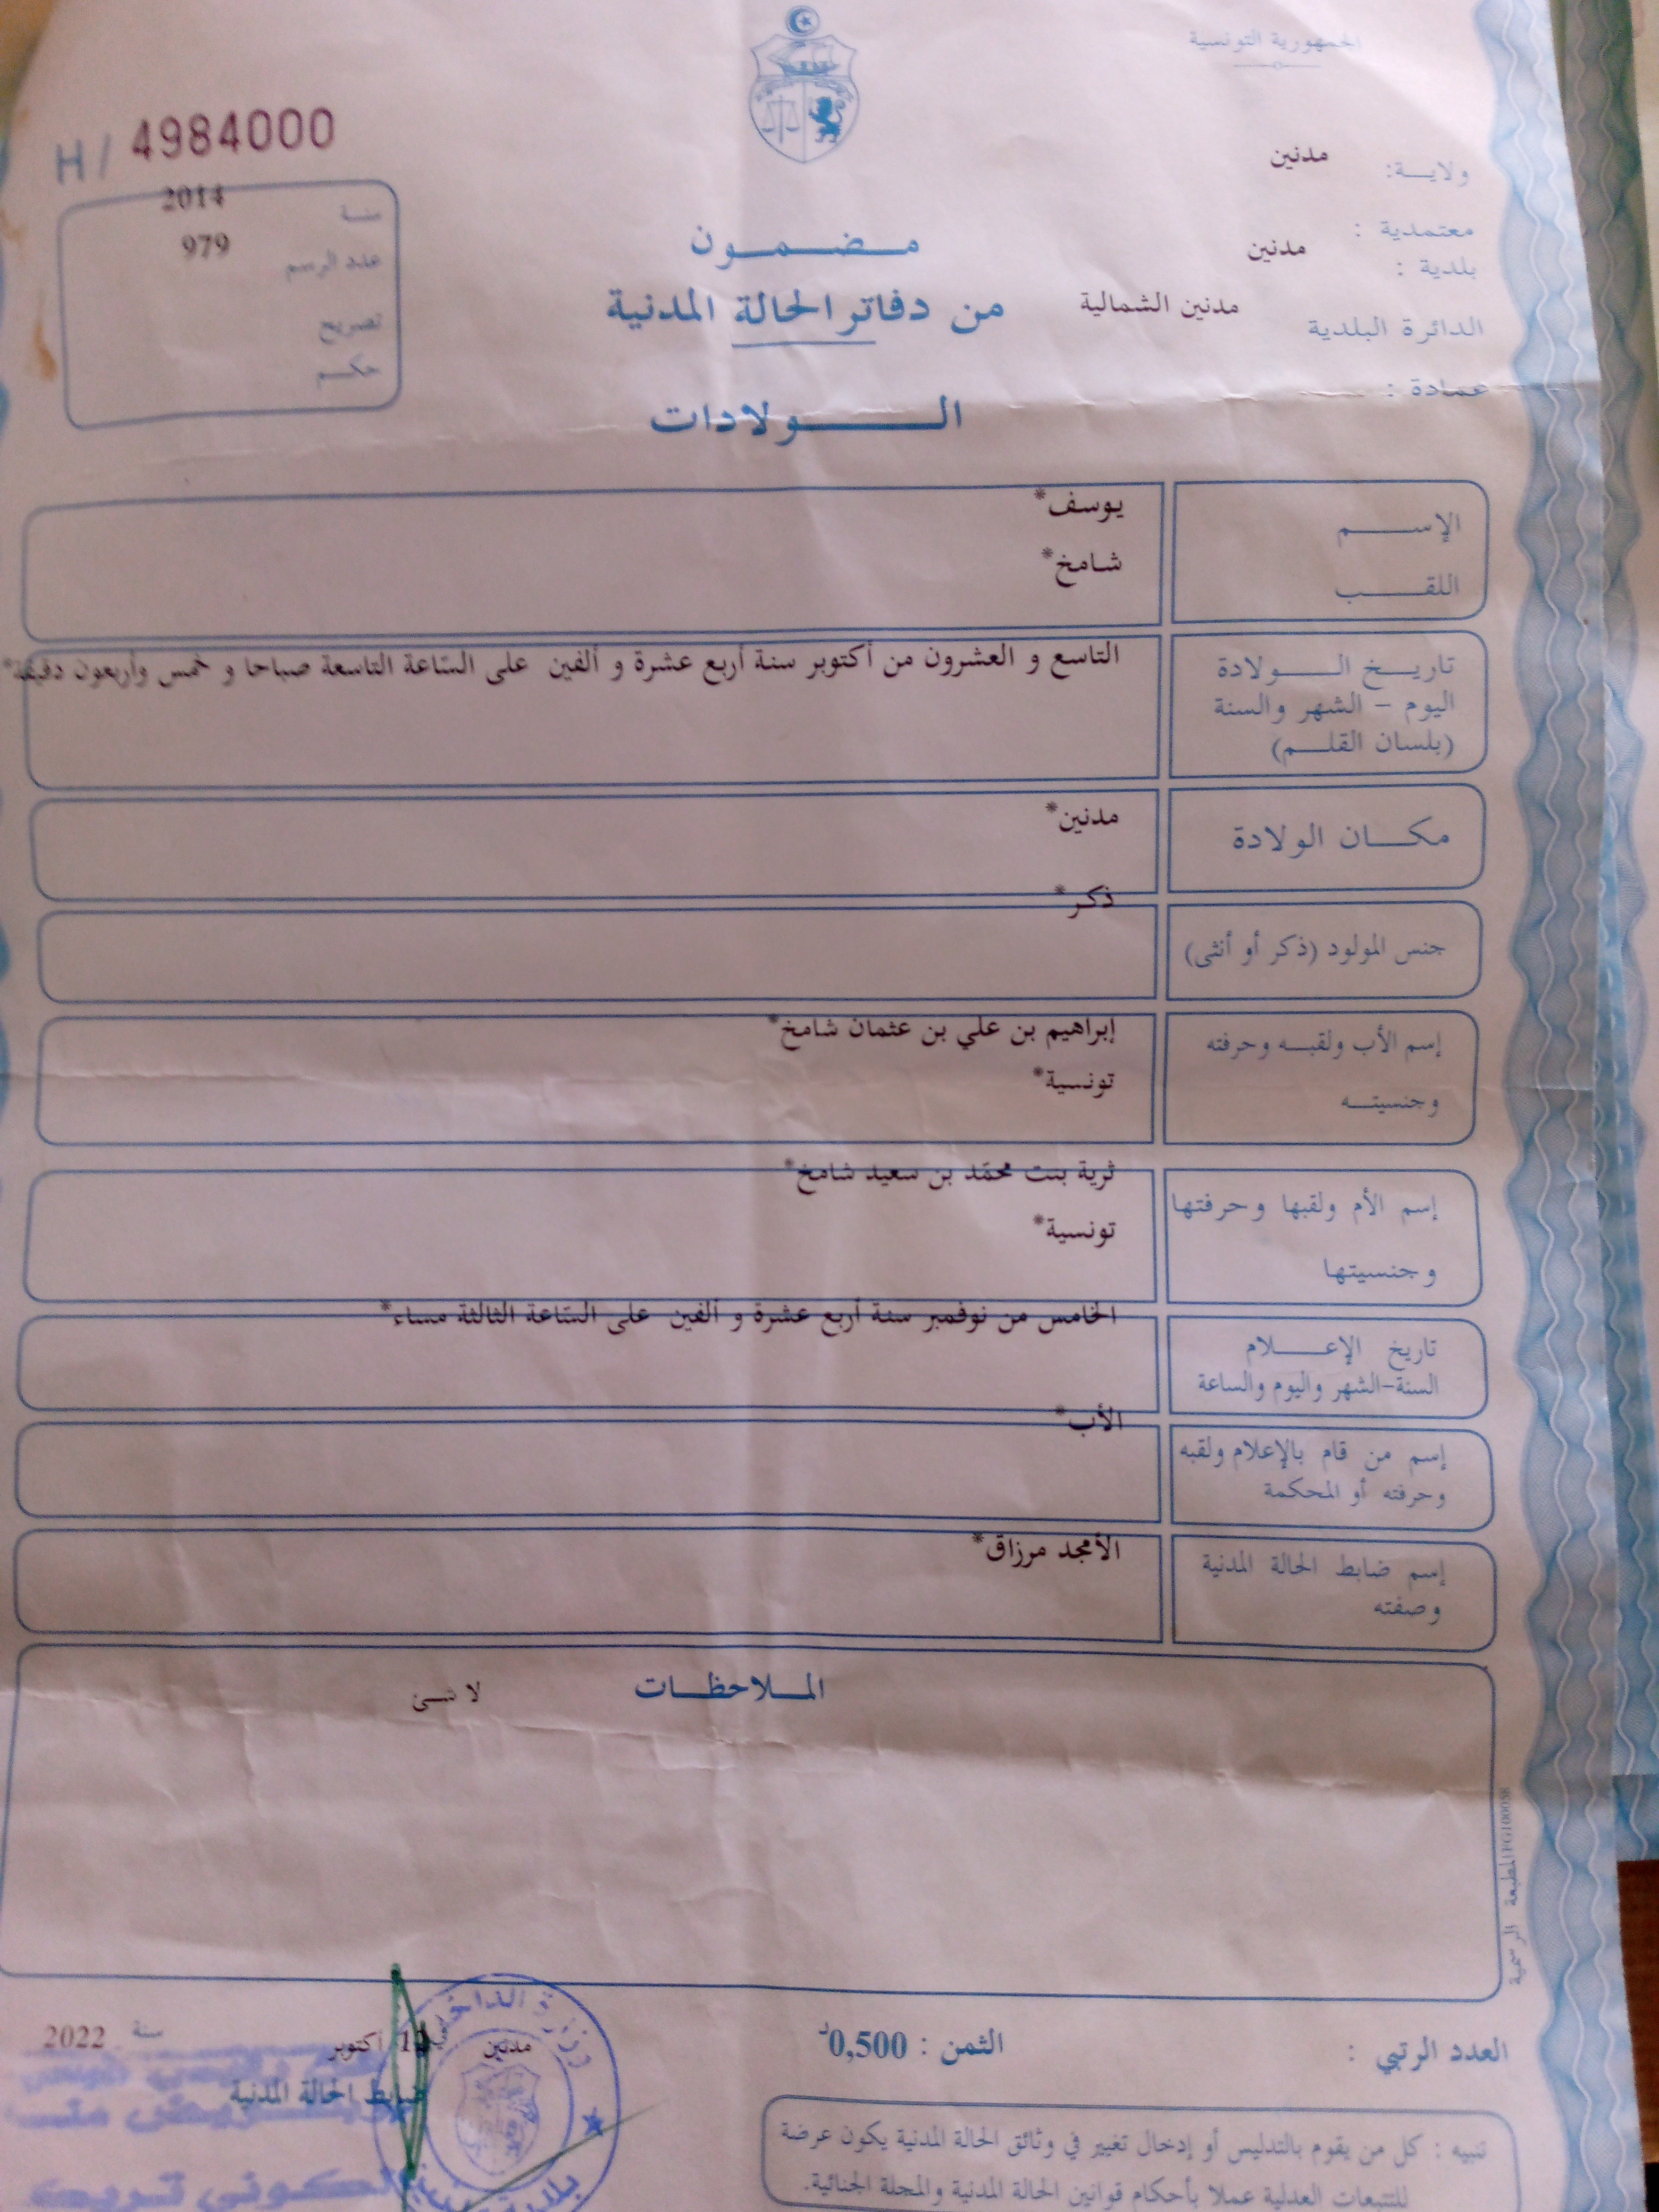 الجمهورية التونسية
H/ 4984000
ولايـــة: مدنين
معتمدية :
بلدية : مدنين
الدائرة البلدية مدنين الشمالية
عمادة :
سنة 2014
عدد الرسم 979
تصريح
حكم
مـضـمـون
من دفاتر الحالة المدنية
الـــولادات
الإســـم يوسف*
اللقـــب شامخ*
تاريــخ الـــولادة التاسع و العشرون من أكتوبر سنة أربع عشرة و ألفين على السّاعة التاسعة صباحا و خمس وأربعون دقيقة*
اليوم – الشهر والسنة
(بلسان القلـــم)
مكـــان الولادة مدنين*
جنس المولود (ذكر أو أنثى) ذكر*
إسم الأب ولقبــه وحرفته إبراهيم بن علي بن عثمان شامخ*
وجنسيتــه تونسية*
إسم الأم ولقبها وحرفتها ثرية بنت محمّد بن سعيد شامخ*
وجنسيتها تونسية*
تاريخ الإعـــلام الخامس من نوفمبر سنة أربع عشرة و ألفين على السّاعة الثالثة مساء*
السنة-الشهر واليوم والساعة
إسم من قام بالإعلام ولقبه الأب*
وحرفته أو المحكمة
إسم ضابط الحالة المدنية الأمجد مرزاق*
وصفته
المــلاحظــات لا شئ
المطبعة الرسمية
العدد الرتبي :
الثمن : 0,500د
وزارة الداخلية
بلدية
مدنين
أكتوبر سنة 2022
ضابط الحالة المدنية
تنبيه : كل من يقوم بالتدليس أو إدخال تغيير في وثائق الحالة المدنية يكون عرضة
للتتبعات العدلية عملا بأحكام قوانين الحالة المدنية والمجلة الجنائية.